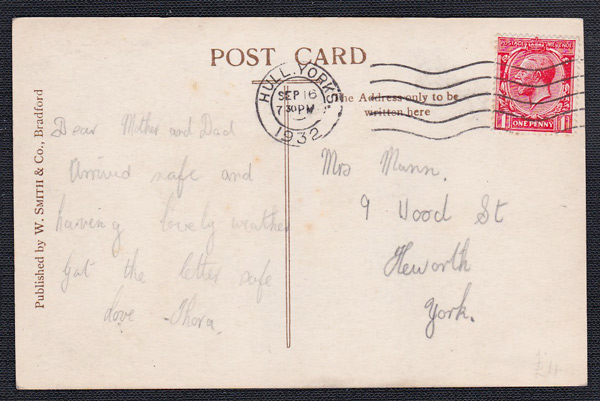 POST CARD
HULL. YORKS.
SEP 16
7 30 PM
1932
POSTAGE REVENUE
ONE PENNY
The Address only to be
written here
Published by W. SMITH & Co., Bradford
Dear Mother and Dad
Arrived safe and
having lovely weather
Got the letter safe
love Thora.
Mrs Mann.
9 Wood St
Heworth
York.